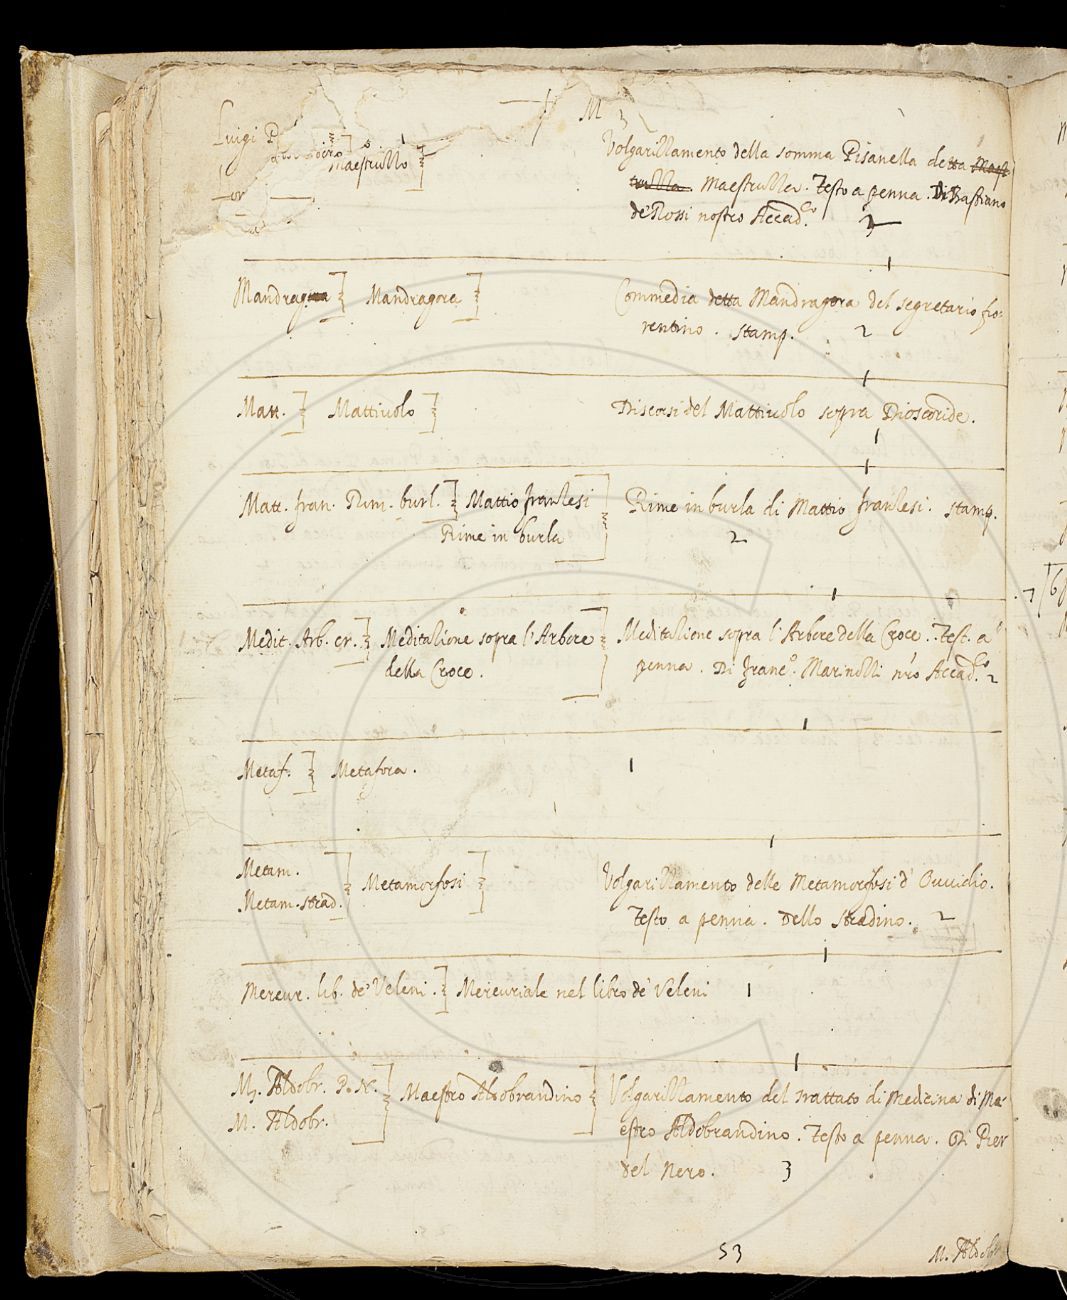 M
3
Luigi P
Maestruzzo
Volgarizzamento della somma Pisanella detta Maest
truzza Maestruzza. Testo a penna. Di Bastiano
de' Rossi nostro Accad.co 3
Mandragora Mandragora Commedia detta Mandragora del segretario fio=
rentino. stamp. 2
Matt. Mattiuolo Discorsi del Mattiuolo sopra Dioscoride.
1
Matt. fran. Rim. burl. Mattio franzesi Rime in burla di Mattio franzesi. stamp.
Rime in burla 2
Medit. Arb. cr. Meditazione sopra l'Arbore Meditazione sopra l'Arbore della Croce. Test. a
della Croce. penna. Di Franc.o Marinozzi nro Accad.co 2
Metaf. Metafora. 1
Metam.
Metam. strad. Metamorfosi Volgarizzamento delle Metamorfosi d'Ouuidio.
Testo a penna. Dello Stradino. 2
Mercur. lib. de' Veleni. Mercuriale nel libro de' Veleni 1
M. Aldobr. P. N. Maestro Aldobrandino Volgarizzamento del trattato di Medicina di Ma=
M. Aldobr. estro Aldobrandino. Testo a penna. Di Pier
del Nero. 3
53
M. Aldobr